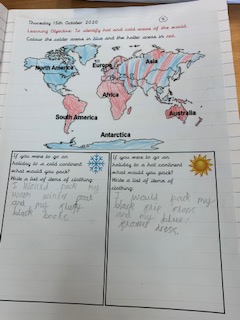 Thursday 15th October 2020
Learning Objective: To identify hot and cold areas of the world.
Colour the colder areas in blue and the hotter areas in red.
North America
Europe
Asia
Africa
South America
Australia
Antarctica
If you were to go on
holiday to a cold continent
what would you pack?
Write a list of items of
clothing.
I would pack my
warm winter coat
and my fluffy
black boots.
If you were to go on
holiday to a hot continent
what would you pack?
Write a list of items of
clothing.
I would pack my
black flip flops
and my blue
flower dress.